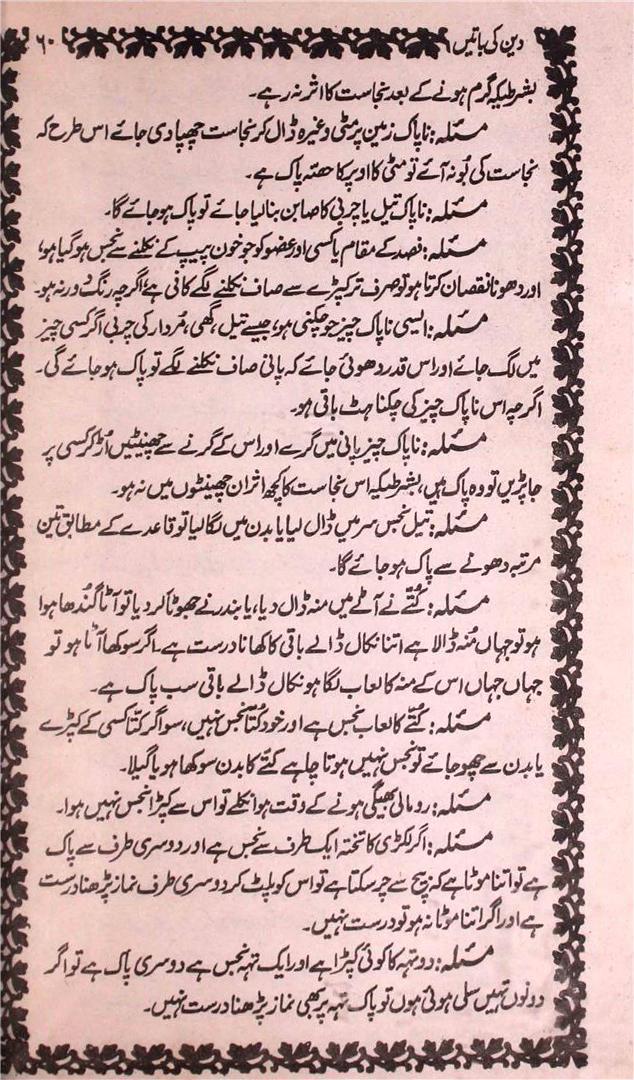 دین کی باتیں ۶۰
بشرطیکہ گرم ہونے کے بعد نجاست کا اثر نہ رہے۔
مسئلہ: ناپاک زمین پر مٹی وغیرہ ڈال کر نجاست چھپا دی جائے اس طرح کہ
نجاست کی بُو نہ آئے تو مٹی کا اوپر کا حصّہ پاک ہے۔
مسئلہ: ناپاک تیل یا چربی کا صابن بنا لیا جائے تو پاک ہو جائے گا۔
مسئلہ: فصد کے مقام یا کسی اور عضو کو جو خون پیپ کے نکلنے سے نجس ہو گیا ہو،
اور دھونا نقصان کرتا ہو تو صرف تر کپڑے سے صاف نکلنے لگے کافی ہے، اگرچہ رنگ دُور نہ ہو۔
مسئلہ: ایسی ناپاک چیز جو چکنی ہو، جیسے تیل، گھی، مُردار کی چربی اگر کسی چیز
میں لگ جائے اور اس قدر دھوئی جائے کہ پانی صاف نکلنے لگے تو پاک ہو جائے گی۔
اگرچہ اس ناپاک چیز کی چکناہٹ باقی ہو۔
مسئلہ: ناپاک چیز پانی میں گرے اور اس کے گرنے سے چھینٹیں اُڑ کر کسی پر
جا پڑیں تو وہ پاک ہیں، بشرطیکہ اس نجاست کا کچھ اثر ان چھینٹوں میں نہ ہو۔
مسئلہ: تیل نجس سر میں ڈال لیا یا بدن میں لگا لیا تو قاعدے کے مطابق تین
مرتبہ دھونے سے پاک ہو جائے گا۔
مسئلہ: کُتّے نے آٹے میں منہ ڈال دیا، یا بندر نے جھوٹا کر دیا تو آٹا گُندھا ہوا
ہو تو جہاں مُنہ ڈالا ہے اتنا نکال ڈالے باقی کا کھانا درست ہے۔ اگر سوکھا آٹا ہو تو
جہاں جہاں اس کے منہ کا لعاب لگا ہو نکال ڈالے باقی سب پاک ہے۔
مسئلہ: کُتّے کا لعاب نجس ہے اور خود کُتّا نجس نہیں، سو اگر کتّا کسی کے کپڑے
یا بدن سے چھو جائے تو نجس نہیں ہوتا چاہے کتّے کا بدن سوکھا ہو یا گیلا۔
مسئلہ: رومالی بھیگی ہونے کے وقت ہوا نکلے تو اس سے کپڑا نجس نہیں ہوا۔
مسئلہ: اگر لکڑی کا تختہ ایک طرف سے نجس ہے اور دوسری طرف سے پاک
ہے تو اتنا موٹا ہے کہ بیچ سے چر سکتا ہے تو اس کو پلٹ کر دوسری طرف نماز پڑھنا درست
ہے اور اگر اتنا موٹا نہ ہو تو درست نہیں۔
مسئلہ: دو تہہ کا کوئی کپڑا ہے اور ایک تہہ نجس ہے دوسری پاک ہے تو اگر
دونوں تہیں سلی ہوئی ہوں تو پاک تہہ پر بھی نماز پڑھنا درست نہیں۔